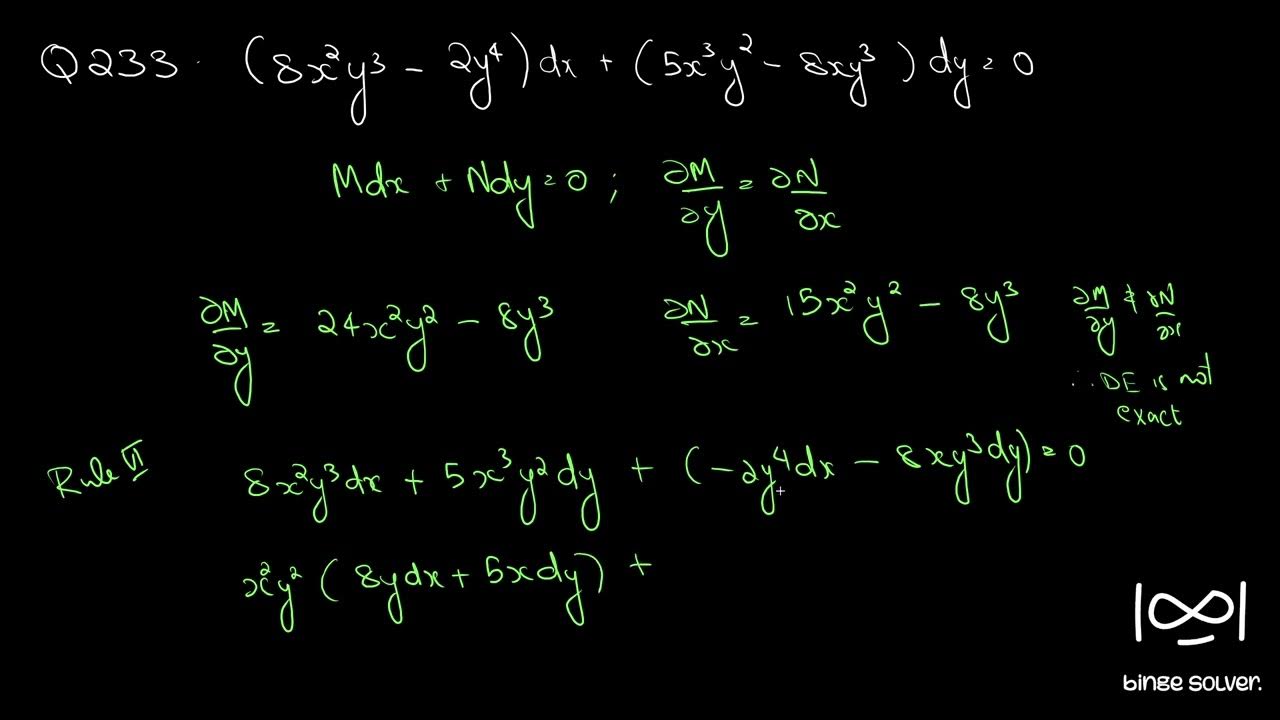 Q233. (8x²y³ - 2y⁴)dx + (5x³y² - 8xy³)dy = 0
Mdx + Ndy = 0 ; ∂M/∂y = ∂N/∂x
∂M/∂y = 24x²y² - 8y³ ∂N/∂x = 15x²y² - 8y³ ∂M/∂y ≠ ∂N/∂x
∴ DE is not
exact
Rule VI 8x²y³dx + 5x³y²dy + (-2y⁴dx - 8xy³dy) = 0
x²y² (8ydx + 5xdy) +
binge solver.